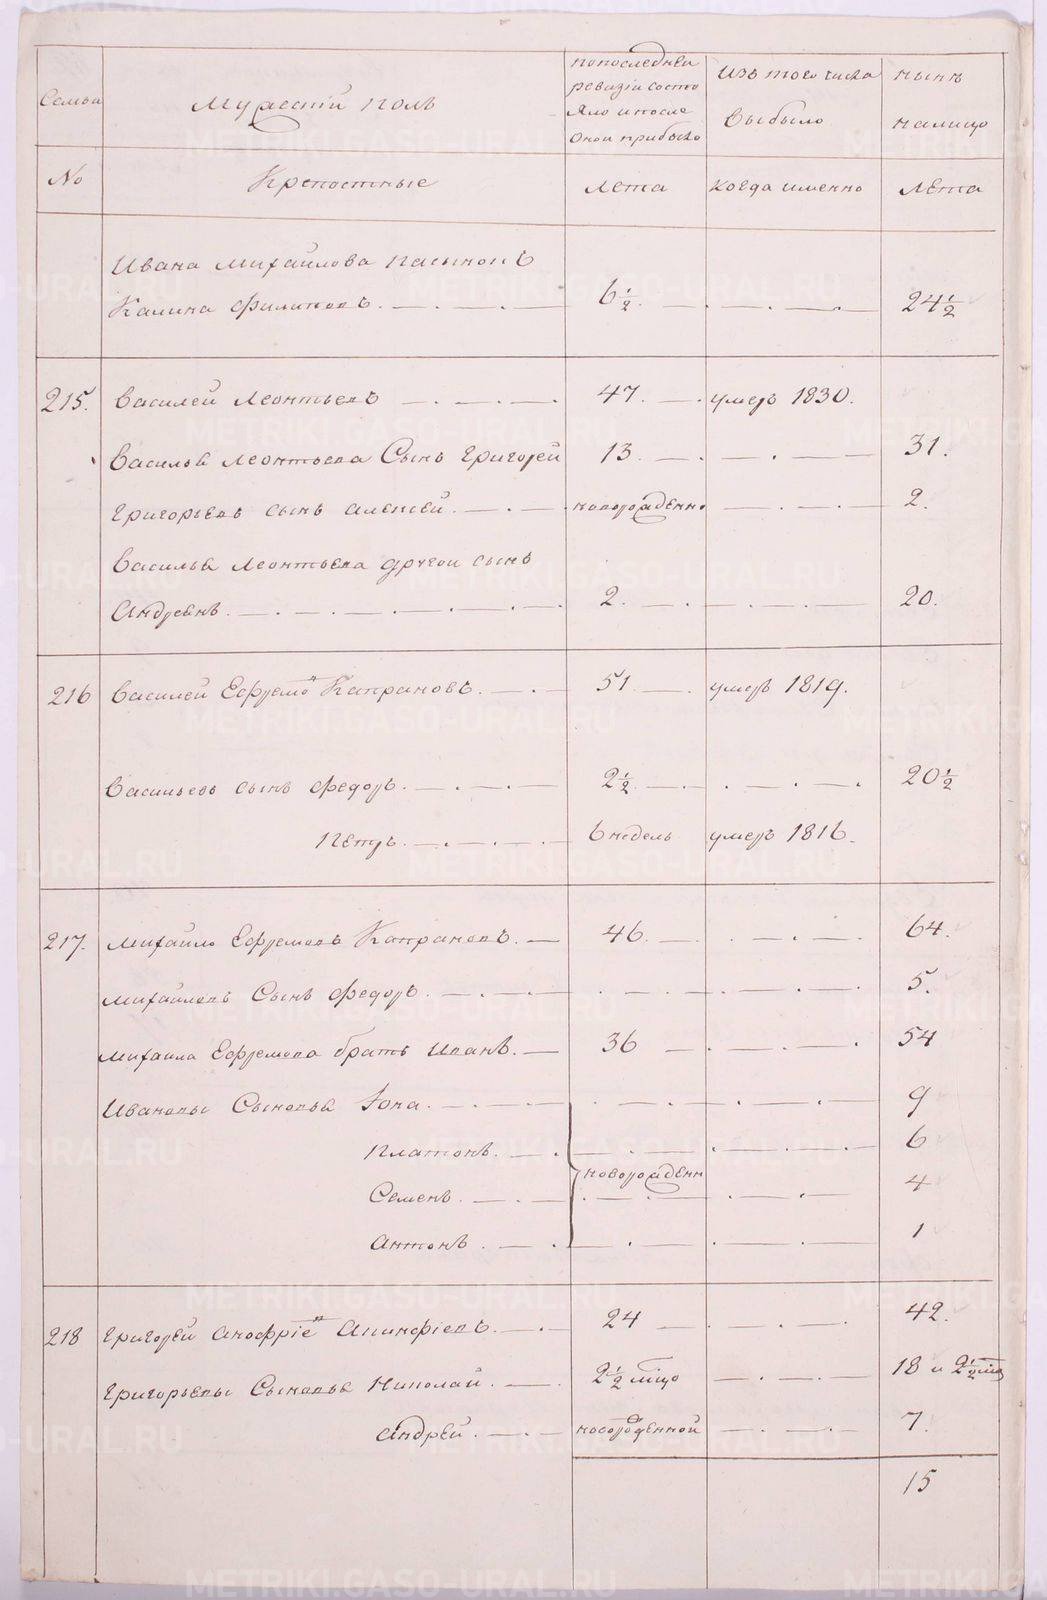 Семьи
Мужескій полъ
попоследней
ревизіи состо
яло ипосле
оной прибыло
Изъ того числа
выбыло
нынѣ
налицо
No
Крепостные
Лета
Когда именно
Лѣта
Ивана Михайлова пасынокъ
Калина Филиповъ. 6½. 24½
215. Василей Леонтьевъ 47. умеръ 1830.
Василья Леонтьева Сынъ Григорей 13. 31.
Григорьевъ сынъ Алексей. новорожденно 2.
Василья Леонтьева другои сынъ
Андреянъ. 2. 20.
216 Василей Ефремовъ Капрановъ. 51. умеръ 1819.
Васильевъ сынъ Федоръ. 2½. 20½
Петръ. 6 недель умеръ 1816.
217. Михайло Ефремовъ Капрановъ. 46. 64.
Михайловъ Сынъ Федоръ. 5.
Михаила Ефремова братъ Иванъ. 36 54
Ивановы Сыновья Іона. 9
Платонъ. 6
новорожденн
Семенъ. 4
Антонъ. 1
218 Григорей Анофріе 24 42.
Григорьевы Сыновья Николай. 2½ мцо 18 и 2½ мцо
Андрей. новорожденной 7.
15
METRIKI.GASO-URAL.RU